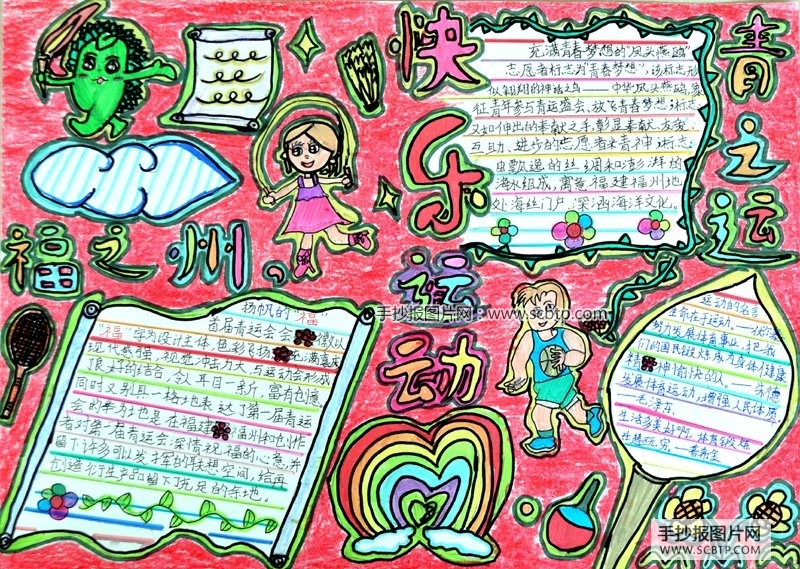 快乐运动
青之运
福之州
充满青春梦想的"凤头燕鸥"
志愿者标志为"青春梦想",该标志形
似翱翔的神话之鸟——中华凤头燕鸥,象
征青年参与青运盛会、放飞青春梦想;标志
又如伸出的奉献之手,彰显奉献、友爱、
互助、进步的志愿者精神;标志
由飘逸的丝绸和澎湃的
海水组成,寓意福建福州地
处海丝门户、深涵海洋文化。
扬帆的"福"
首届青运会会徽以
"福"字为设计主体,色彩飞扬,充满
现代感强,视觉冲击力大,与运动会形成
很好的结合,令人耳目一新,富有创意。
同时又别具一格地表达了第一届青运
会的举办地也是在福建福州和创作
者对第一届青运会深情祝福的心意,并
留下许多可以发挥的联想空间,给再
创造衍生产品留下充足的余地。
运动的名言
生命在于运动。——伏尔泰
努力发展体育事业,把我
们的国民锻炼成为身体健康
精神愉快的人。——朱德
发展体育运动,增强人民体质。
——毛泽东
生活多美好啊,体育锻炼
乐趣无穷。——普希金
手抄报图片网:www.scbtp.com
手抄报图片网
WWW.SCBTP.COM